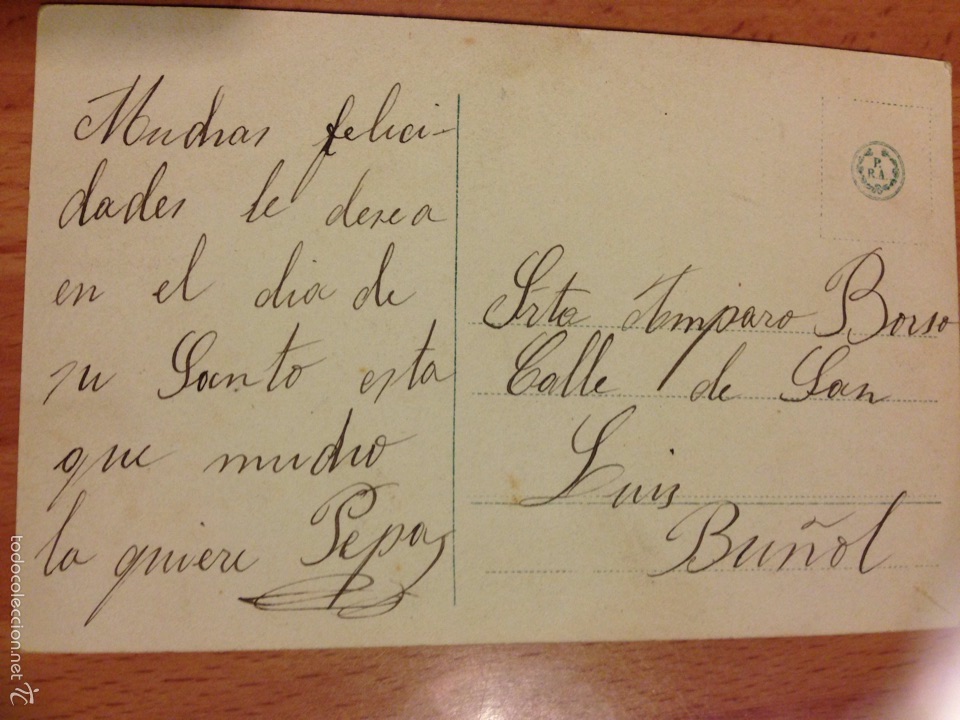 Muchas felici-
dades le desea
en el dia de
su Santo esta
que mucho
la quiere Pepa
P.
R.A.
Srta Amparo Borso
Calle de San
Luis
Buñol
todocoleccion.net